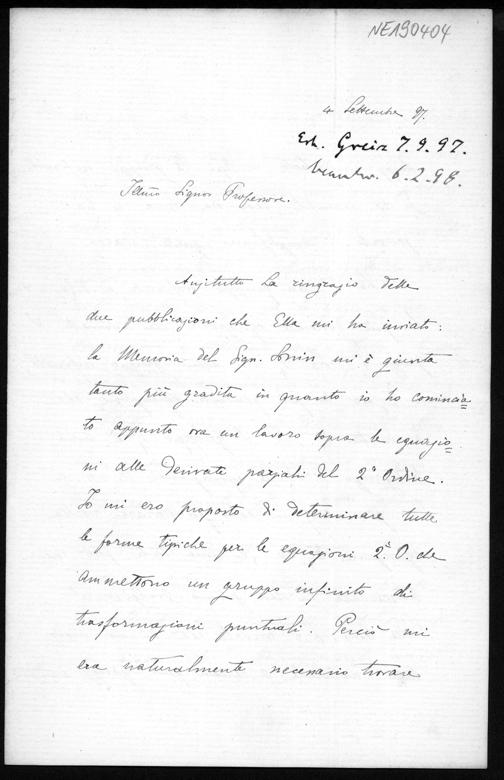 NE190404
4 Settembre 97.
Erh. Greiz 7.9.97.
Beantw. 6.2.98.
Illmo Signor Professore.
Anzitutto La ringrazio delle
due pubblicazioni che Ella mi ha inviato:
la Memoria del Sign. Sonin mi è giunta
tanto più gradita in quanto io ho comincia=
to appunto ora un lavoro sopra le equazio=
ni alle derivate parziali del 2° Ordine.
Io mi ero proposto di determinare tutte
le forme tipiche per le equazioni 2° O. che
ammettono un gruppo infinito di
trasformazioni puntuali. Perciò mi
era naturalmente necessario trovare